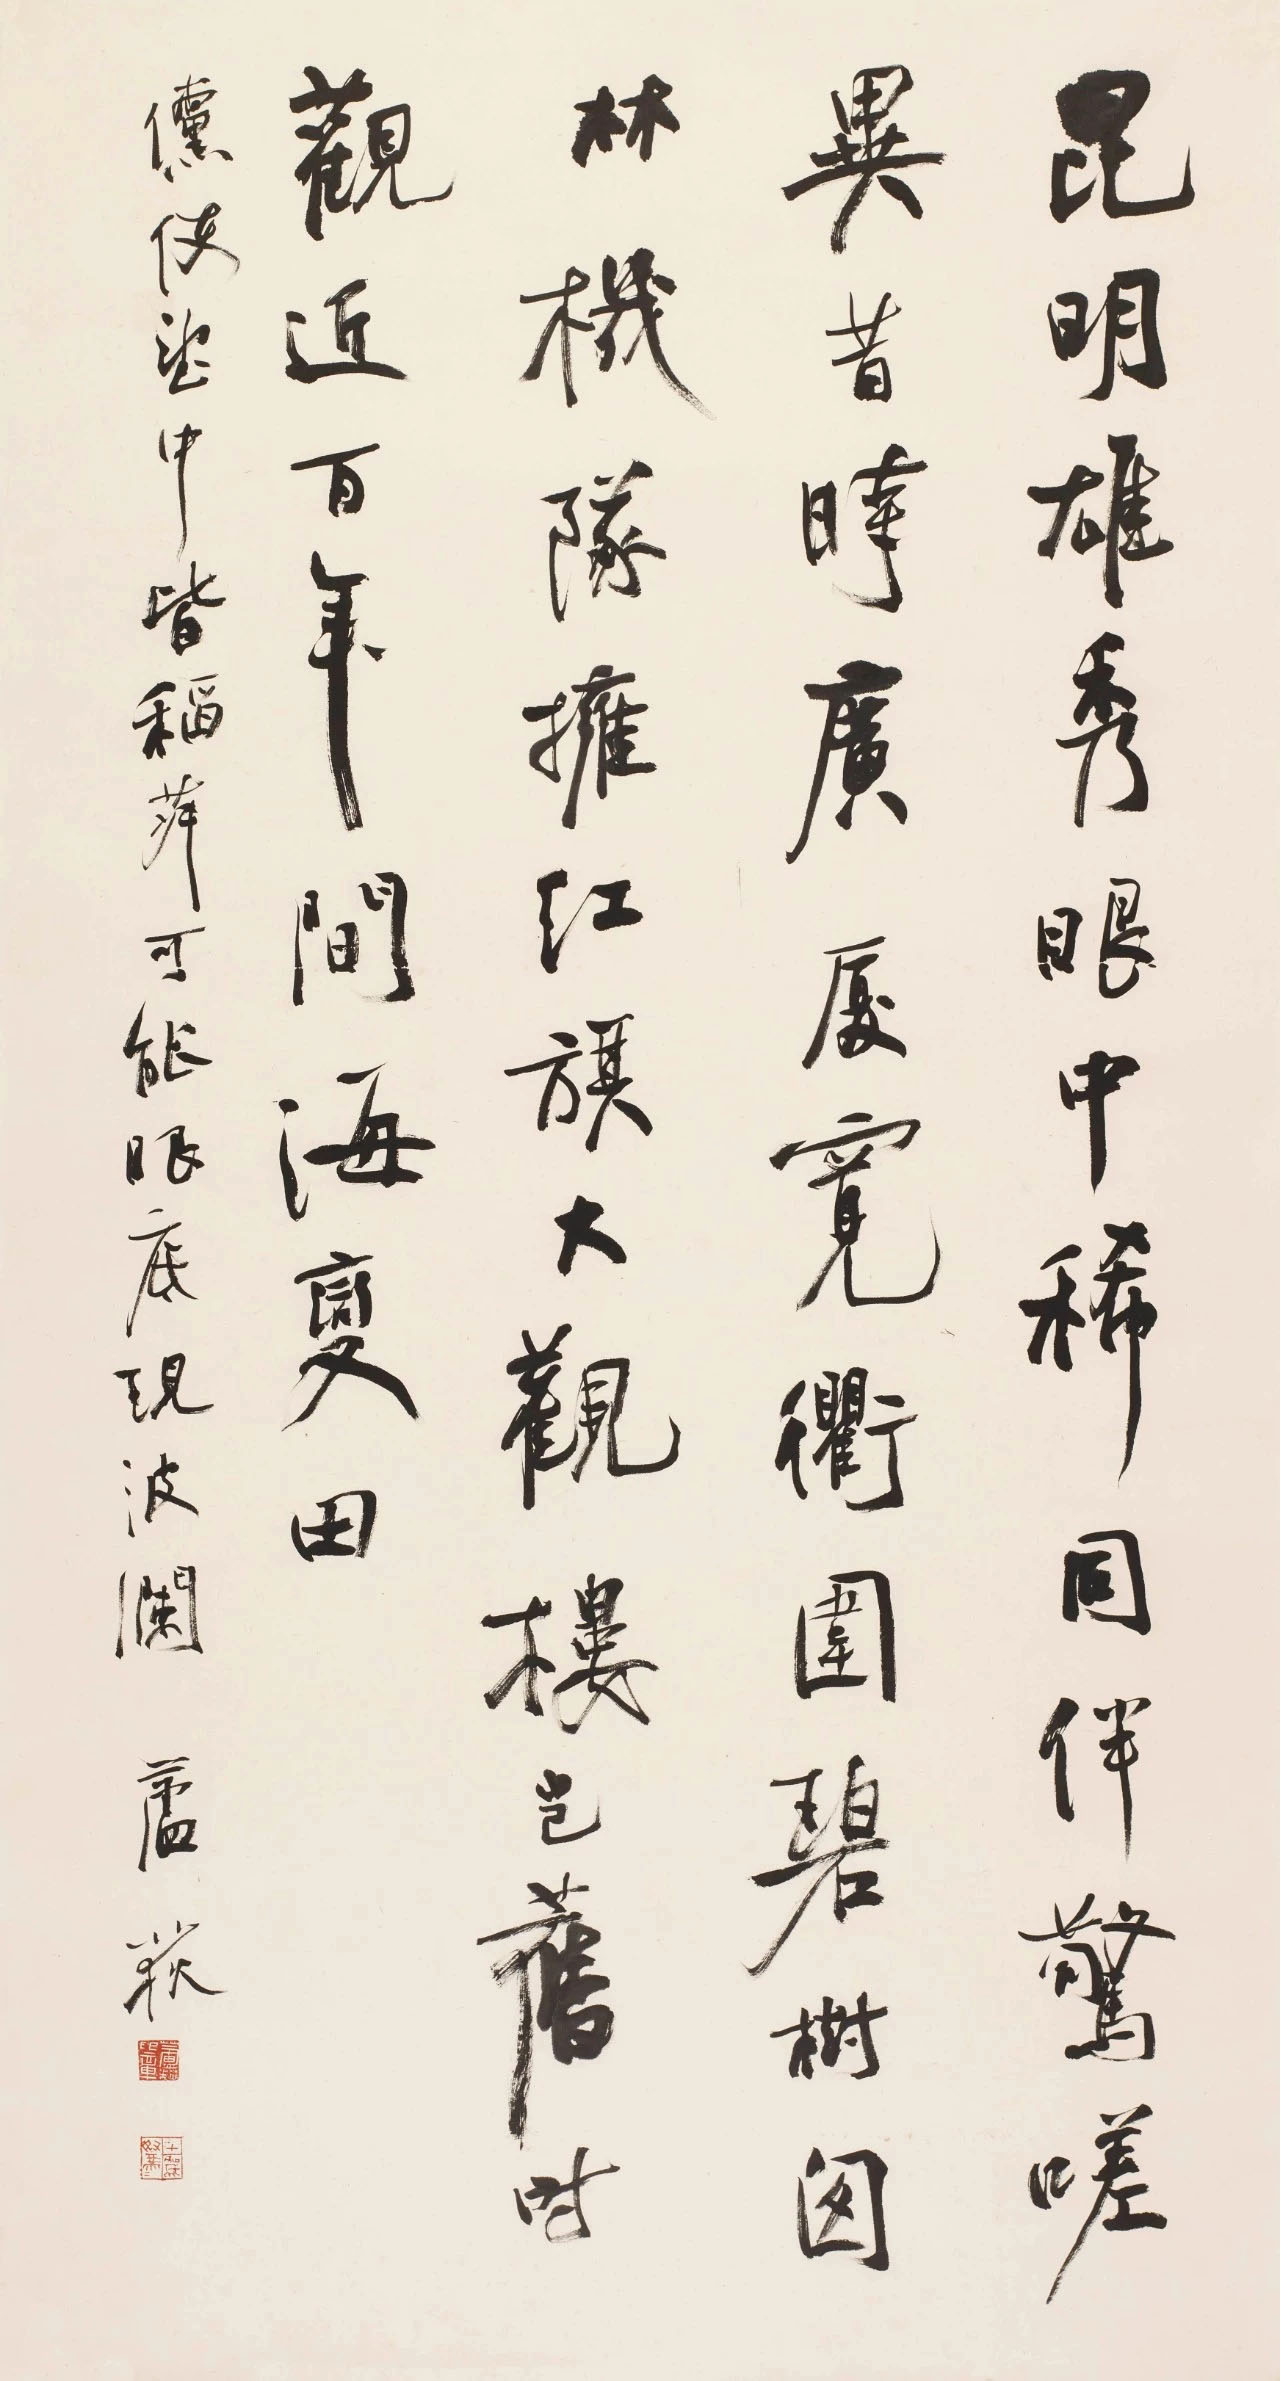 昆明雄秀眼中稀同伴驚嗟
異昔時廣厦寬衢圍碧樹囱
林機隊擁紅旗大觀樓豈舊時
觀近百年間海變田
儻使望中皆稻萍可能眼底現波瀾 蘆荻